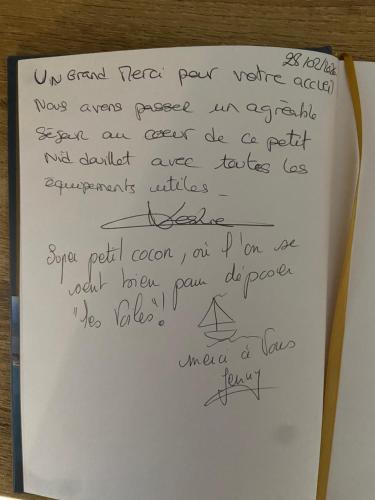 28/02/2026
UN Grand Merci pour votre accueil
Nous avons passer un agréable
Séjour au coeur de ce petit
Nid douillet avec toutes les
équipements utiles _
Super petit cocon, où l'on se
sent bien pour déposer
"les Voiles"!
merci à Vous
Jenny